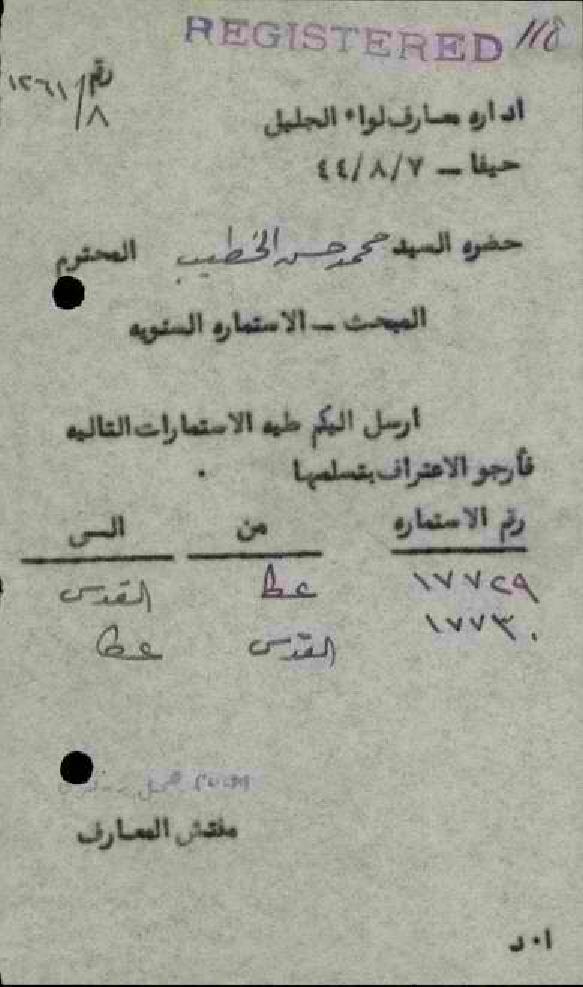 REGISTERED 118
رقم ١٢٦١/٨
اداره معارف لواء الجليل
حيفا — ٤٤/٨/٧
حضره السيد محمد حسن الخطيب المحترم
المبحث — الاستماره السنويه
ارسل اليكم طيه الاستمارات التاليه
فأرجو الاعتراف بتسلمها .
رقم الاستماره من الــى
١٧٧٢٩ عكا القدس
١٧٧٣٠ القدس عكا
مفتش المعارف
ا٠د